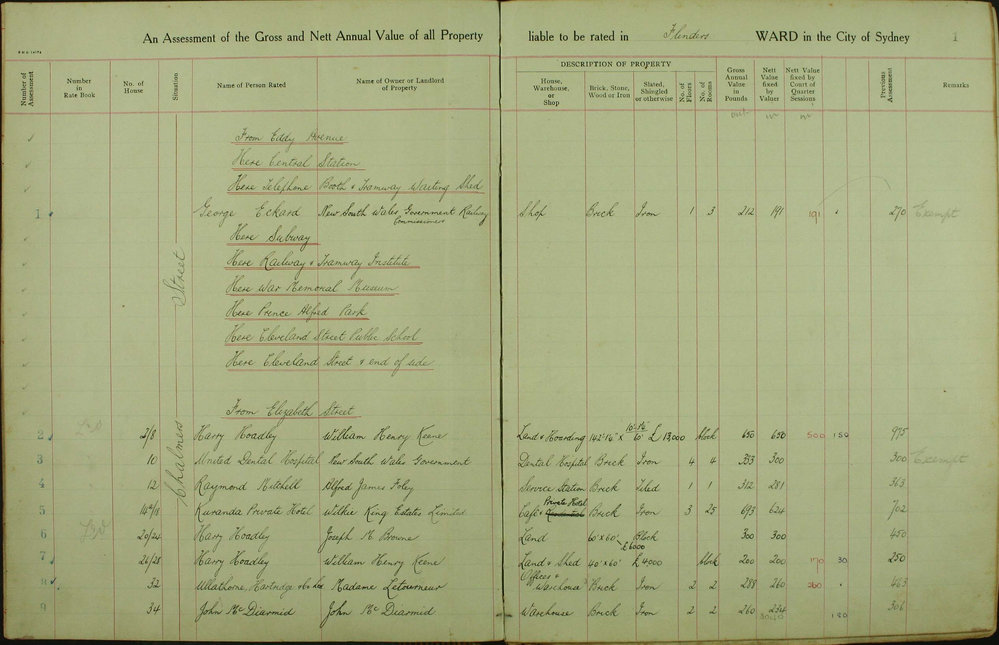 An Assessment of the Gross and Nett Annual Value of all Property liable to be rated in Flinders WARD in the City of Sydney 1
DESCRIPTION OF PROPERTY
Number of Assessment | Number in Rate Book | No. of House | Situation | Name of Person Rated | Name of Owner or Landlord of Property | House, Warehouse, or Shop | Brick, Stone, Wood or Iron | Slated, Shingled or otherwise | No. of Floors | No. of Rooms | Gross Annual Value in Pounds | Nett Value fixed by Valuer | Nett Value fixed by Court of Quarter Sessions | Previous Assessment | Remarks
Chalmers Street
From Eddy Avenue
Here Central Station
Here Telephone Booth & Tramway Waiting Shed
1 George Eckard New South Wales Government Railway Commissioners Shop Brick Iron 1 3 212 191 191 270 Exempt
Here Subway
Here Railway & Tramway Institute
Here War Memorial Museum
Here Prince Alfred Park
Here Cleveland Street Public School
Here Cleveland Street & end of side
From Elizabeth Street
2 2/8 Harry Hoadley William Henry Keene Land & Hoarding 142'16" x 60' £13,000 block 650 650 500 150 975
3 10 United Dental Hospital New South Wales Government Dental Hospital Brick Iron 4 4 333 300 300 Exempt
4 12 Raymond Mitchell Alfred James Foley Service Station Brick Tiled 1 1 312 281 363
5 14a/18 Kuranda Private Hotel Wilkie King Estates Limited Café & Private Hotel Brick Iron 3 25 693 624 702
6 20/24 Harry Hoadley Joseph M Browne Land 60' x 60' £6000 Block 300 300 450
7 26/28 Harry Hoadley William Henry Keene Land & Shed 40' x 60' £4000 block 200 200 170 30 250
8 32 Hartridge & Co Ltd Madame Letourneur Offices & Warehouse Brick Iron 2 2 288 260 260 463
9 34 John Mc Diarmid John Mc Diarmid Warehouse Brick Iron 2 2 260 234 306